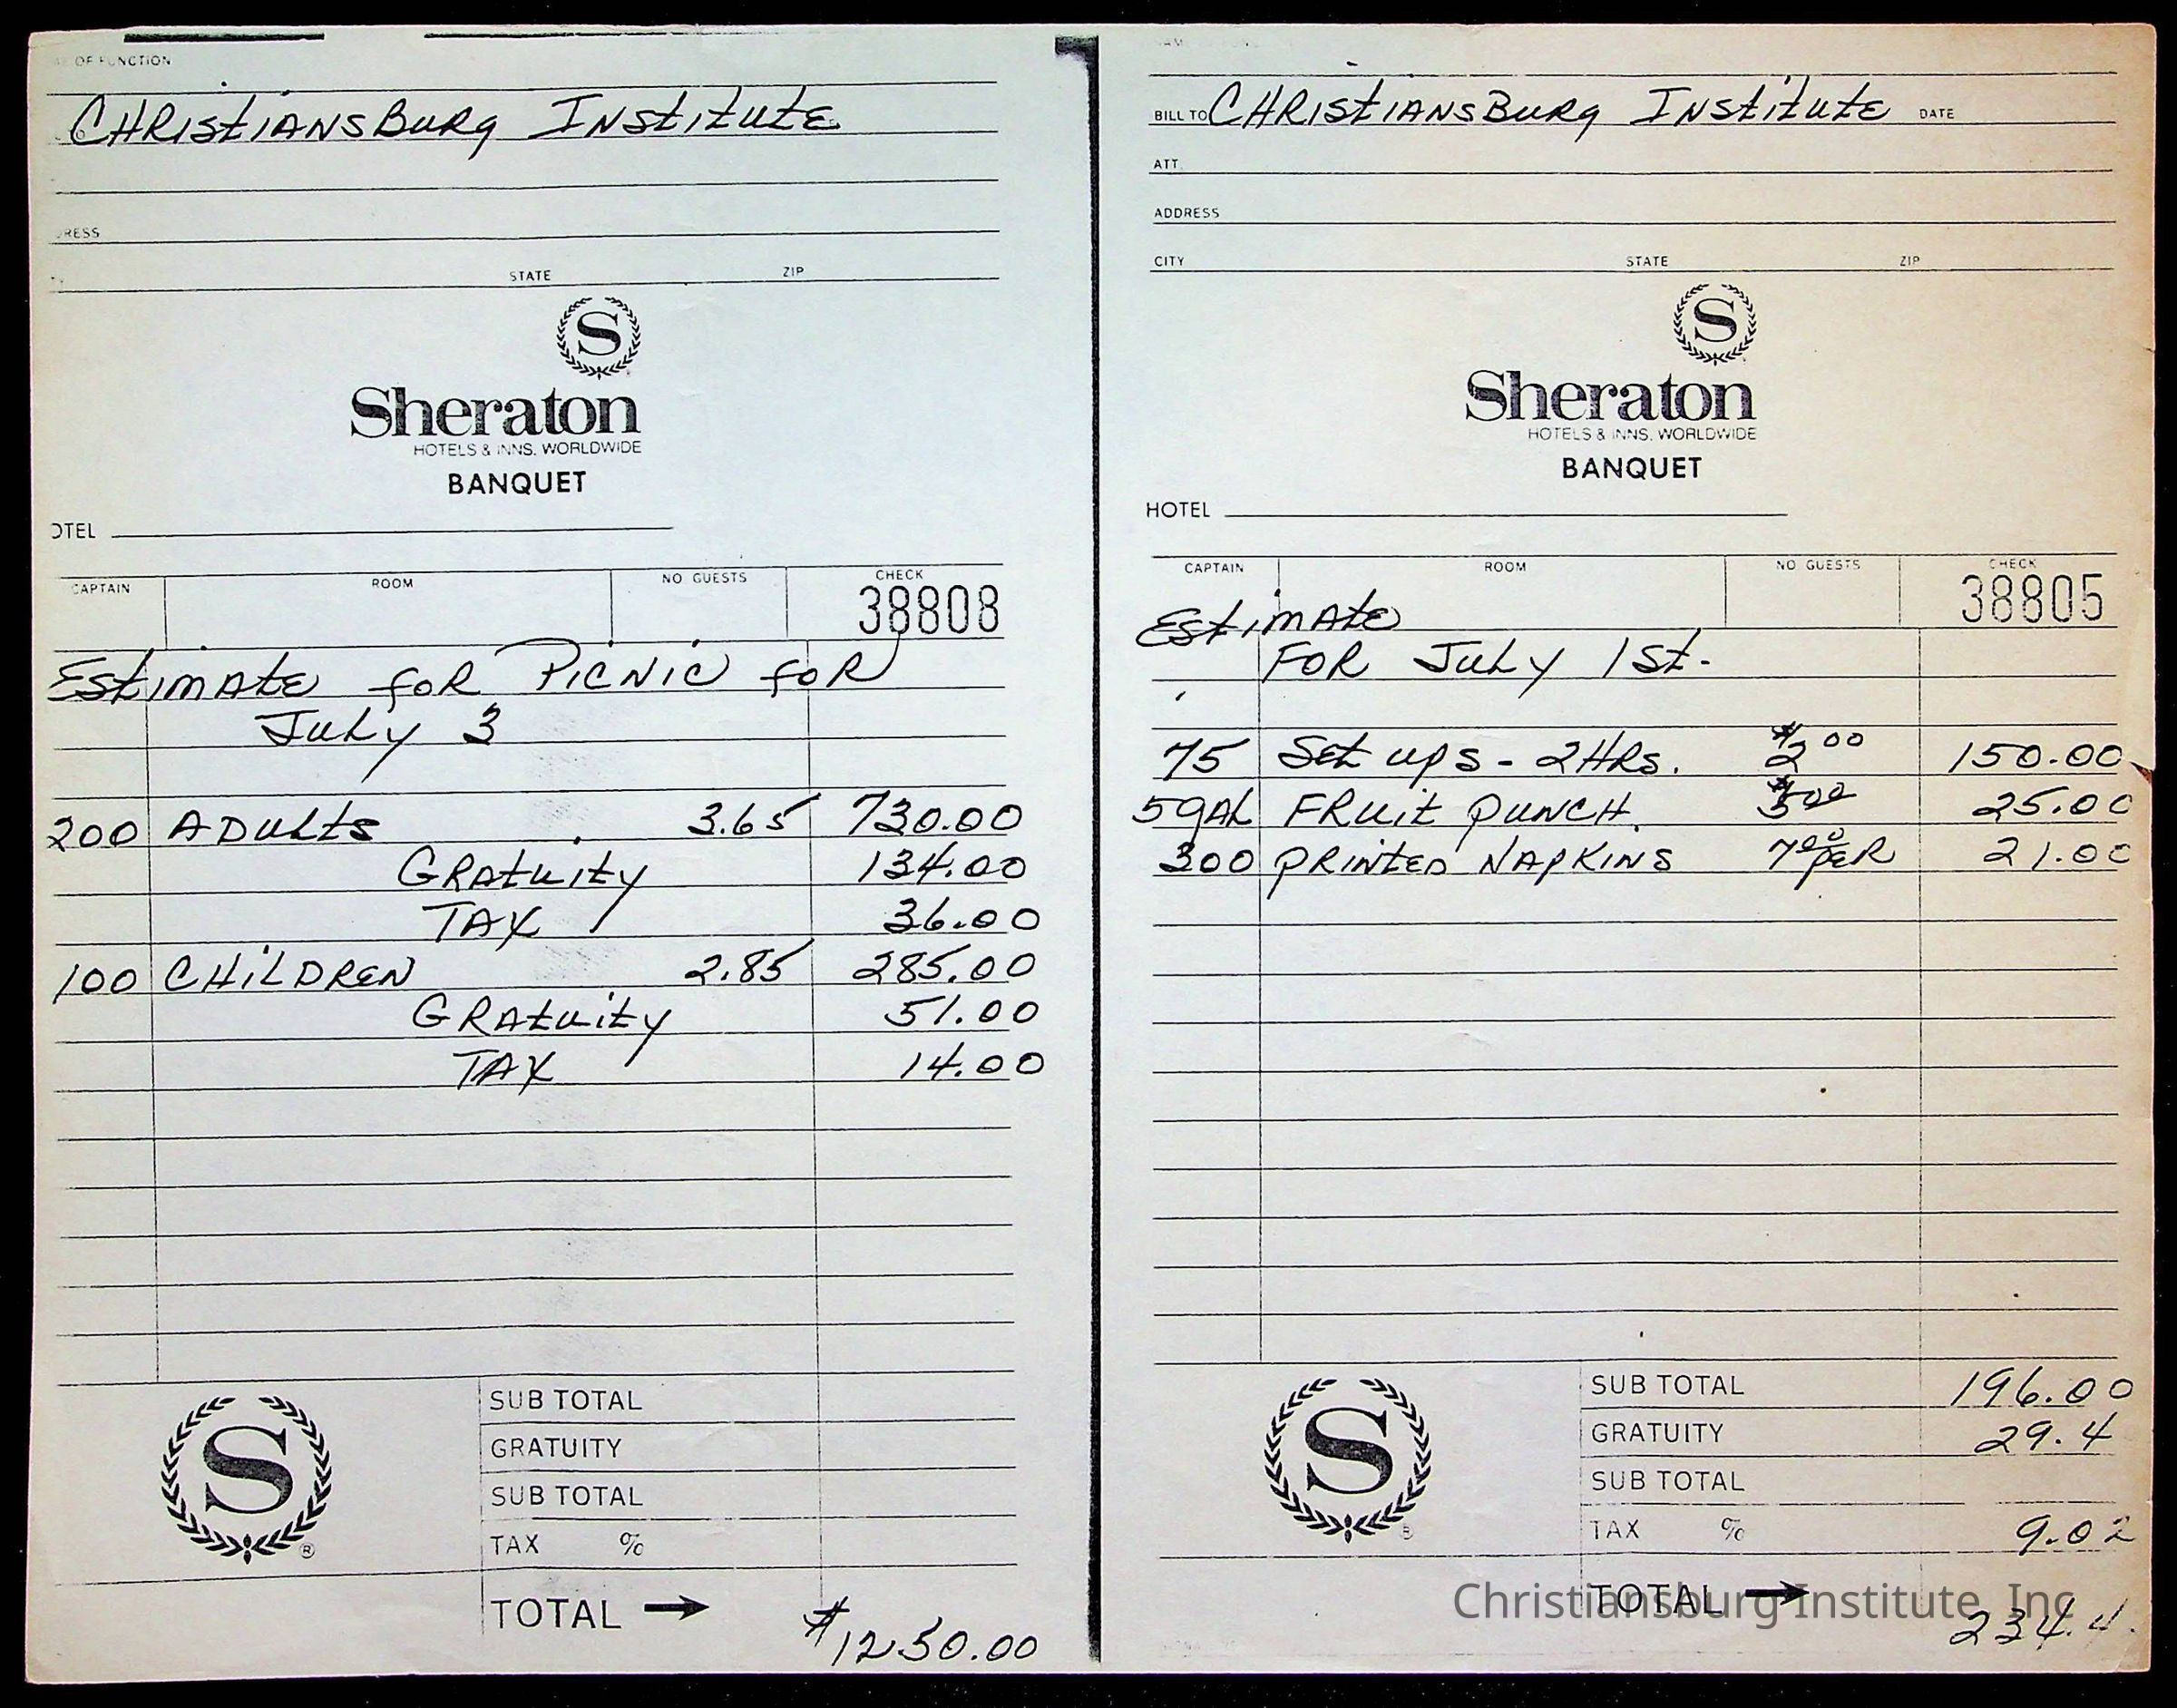 OF FUNCTION
CHRistiANSBuRg INStitutE
RESS
STATE ZIP
S
Sheraton
HOTELS & INNS, WORLDWIDE
BANQUET
OTEL
CAPTAIN ROOM NO GUESTS CHECK
38808
EstimAtE foR PicNic foR
July 3
200 ADults 3.65 730.00
GRAtuity 134.00
TAX 36.00
100 CHiLDREN 2.85 285.00
GRAtuity 51.00
TAX 14.00
S ®
SUB TOTAL
GRATUITY
SUB TOTAL
TAX %
TOTAL → $1250.00
BILL TO CHRistiANSBuRg INStitutE DATE
ATT.
ADDRESS
CITY STATE ZIP
S
Sheraton
HOTELS & INNS, WORLDWIDE
BANQUET
HOTEL
CAPTAIN ROOM NO GUESTS CHECK
38805
EstimAtE
FOR July 1st.
75 Set ups - 2 HRs. $2.00 150.00
5 gAL FRuit puNCH. $5.00 25.00
300 pRiNtED NApKiNS 7¢ pER 21.00
S
SUB TOTAL 196.00
GRATUITY 29.4
SUB TOTAL
TAX % 9.02
TOTAL → 234.4
Christiansburg Institute, Inc